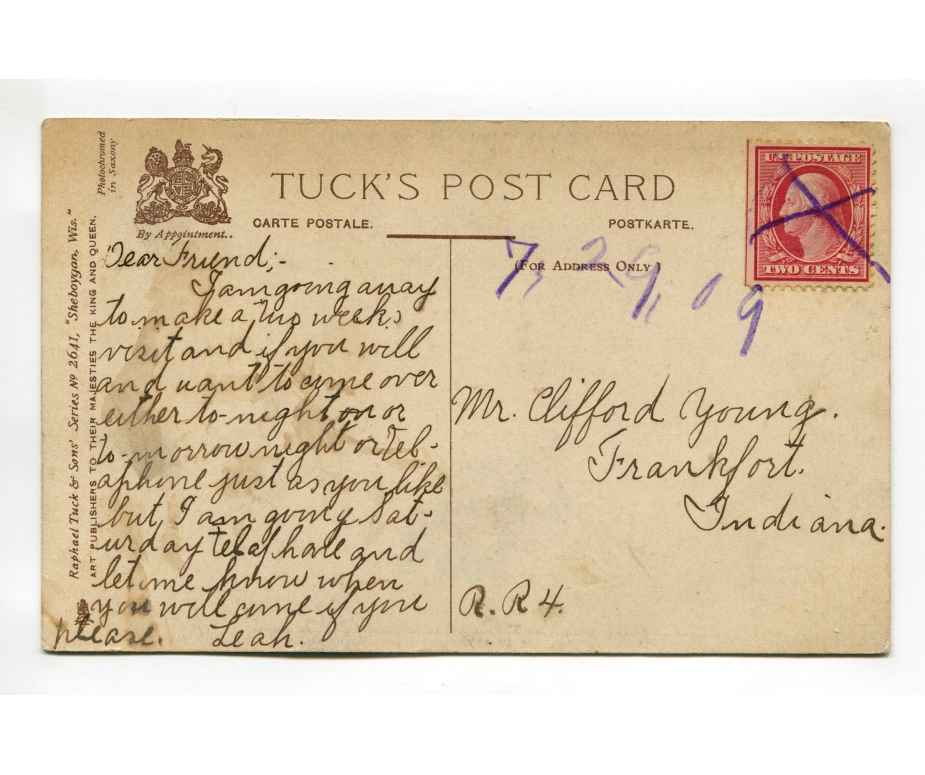 Photochromed
in Saxony
By Appointment.
TUCK'S POST CARD
CARTE POSTALE.
POSTKARTE.
(FOR ADDRESS ONLY)
U.S. POSTAGE
TWO CENTS
7, 29, 09
Raphael Tuck & Sons' Series No 2641, "Sheboygan, Wis."
ART PUBLISHERS TO THEIR MAJESTIES THE KING AND QUEEN.
Dear Friend;-
I am going away
to make a two weeks
visit and if you will
and want to come over
either to-night on or
to-morrow night or tel-
aphone just as you like
but I am going Sat-
urday telaphone and
let me know when
you will come if you
please. Leah.
Mr. Clifford Young.
Frankfort.
Indiana.
R. R 4.